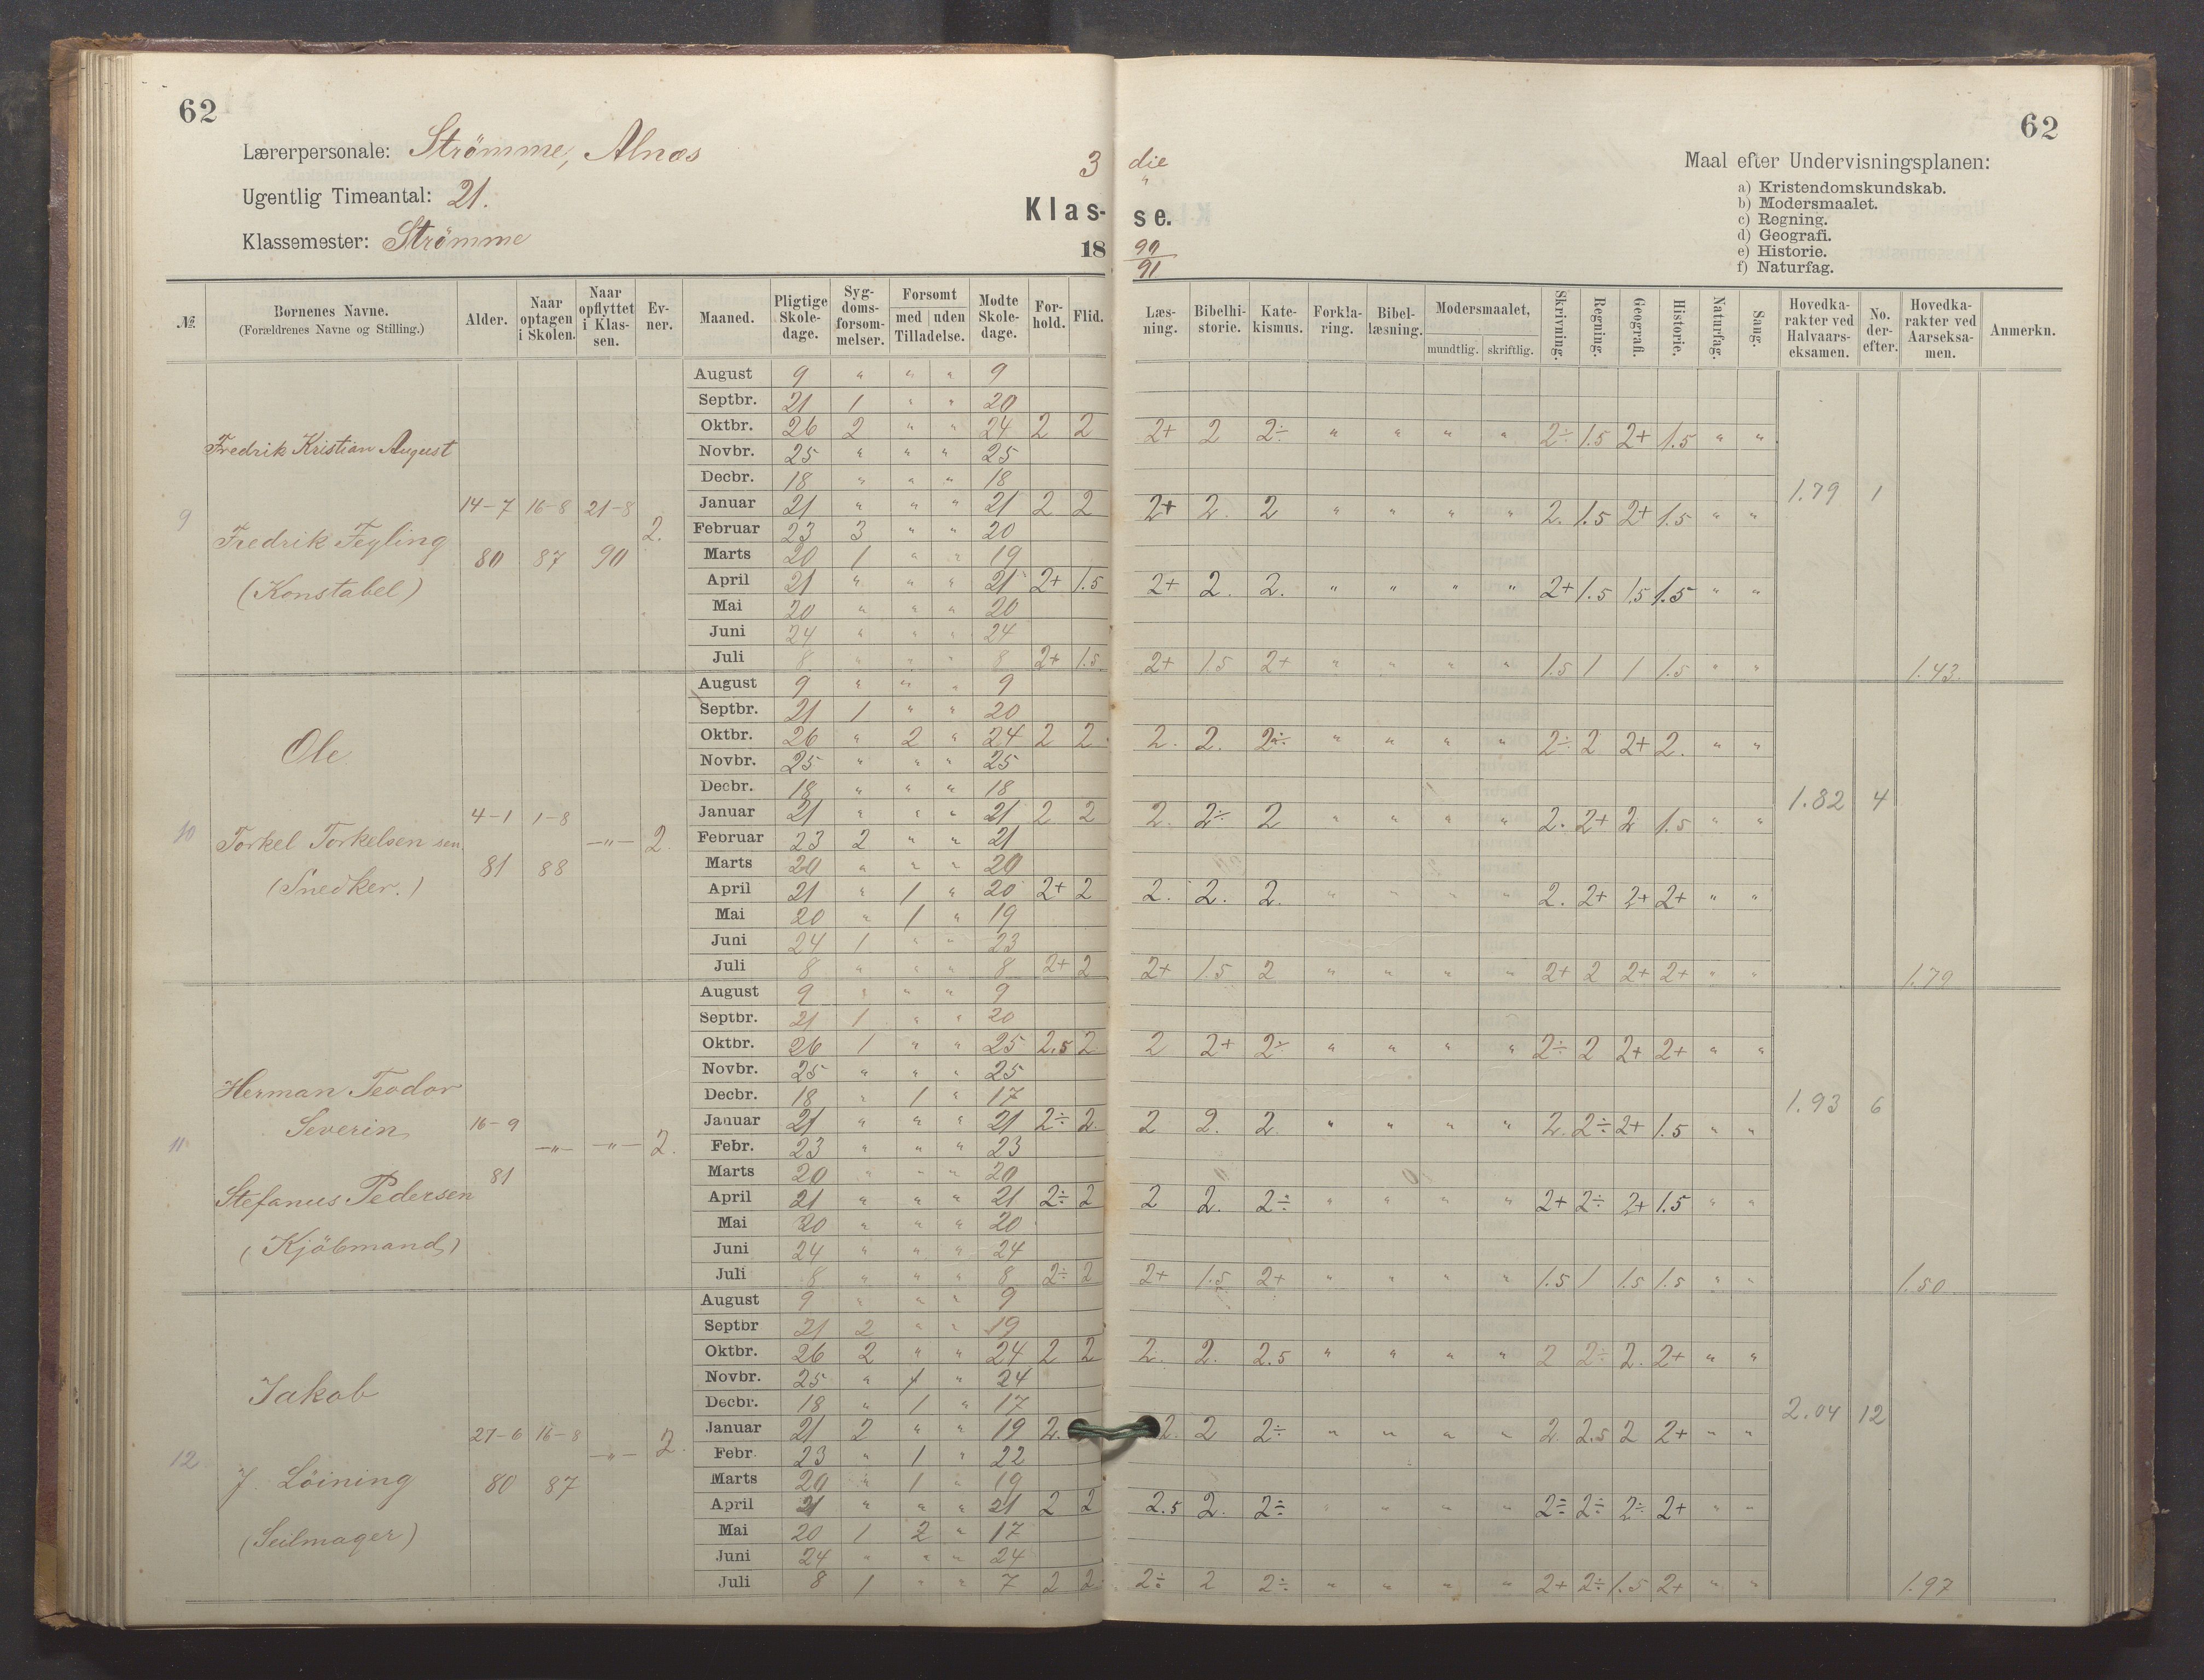 62
62
Lærerpersonale: Strömme, Alnæs
Ugentlig Timeantal: 21.
Klassemester: Strömme
3 die
Klas- se.
18 90/91
Maal efter Undervisningsplanen:
a) Kristendomskundskab.
b) Modersmaalet.
c) Regning.
d) Geografi.
e) Historie.
f) Naturfag.
№ Børnenes Navne. (Forældrenes Navne og Stilling.) Alder. Naar optagen i Skolen. Naar opflyttet i Klassen. Evner. Maaned. Pligtige Skoledage. Sygdomsforsømmelser. Forsømt med uden Tilladelse. Mødte Skoledage. Forhold. Flid. Læsning. Bibelhistorie. Katekismus. Forklaring. Bibellæsning. Modersmaalet, mundtlig. skriftlig. Skrivning. Regning. Geografi. Historie. Naturfag. Sang. Hovedkarakter ved Halvaarseksamen. No. derefter. Hovedkarakter ved Aarseksamen. Anmerkn.
9 Fredrik Kristian August
Fredrik Feyling
(Konstabel)
14-7 80 16-8 87 21-8 90 2.
August 9 " " " 9
Septbr. 21 1 " " 20
Oktbr. 26 2 " " 24 2 2 2+ 2 2÷ " " " " 2÷ 1.5 2+ 1.5 " "
Novbr. 25 " " " 25
Decbr. 18 " " " 18
Januar 21 " " " 21 2 2 2+ 2. 2 " " " " 2. 1.5 2+ 1.5 " " 1.79 1
Februar 23 3 " " 20
Marts 20 1 " " 19
April 21 " " " 21 2+ 1.5 2+ 2. 2. " " " " 2+ 1.5 1.5 1.5 " "
Mai 20 " " " 20
Juni 24 " " " 24
Juli 8 " " " 8 2+ 1.5 2+ 1.5 2+ " " " " 1.5 1 1 1.5 " " 1.43.
10 Ole
Torkel Torkelsen sen.
(Snedker.)
4-1 81 1-8 88 -"- 2.
August 9 " " " 9
Septbr. 21 1 " " 20
Oktbr. 26 " 2 " 24 2 2 2. 2. 2÷ " " " " 2÷ 2 2+ 2. " "
Novbr. 25 " " " 25
Decbr. 18 " " " 18
Januar 21 " " " 21 2 2 2. 2÷ 2 " " " " 2. 2+ 2 1.5 " " 1.82 4
Februar 23 2 " " 21
Marts 20 " " " 20
April 21 " 1 " 20 2+ 2 2. 2. 2. " " " " 2. 2+ 2+ 2+ " "
Mai 20 " 1 " 19
Juni 24 1 " " 23
Juli 8 " " " 8 2+ 2 2+ 1.5 2 " " " " 2+ 2 2+ 2+ " " 1.79
11 Herman Teodor
Severin
Stefanus Pedersen
(Kjöbmand)
16-9 81 -"- -"- 2.
August 9 " " " 9
Septbr. 21 1 " " 20
Oktbr. 26 1 " " 25 2.5 2 2 2+ 2÷ " " " " 2÷ 2 2+ 2+ " "
Novbr. 25 " " " 25
Decbr. 18 " 1 " 17
Januar 21 " " " 21 2÷ 2. 2 2. 2. " " " " 2. 2÷ 2+ 1.5 " " 1.93 6
Febr. 23 " " " 23
Marts 20 " " " 20
April 21 " " " 21 2÷ 2 2 2. 2÷ " " " " 2+ 2÷ 2+ 1.5 " "
Mai 20 " " " 20
Juni 24 " " " 24
Juli 8 " " " 8 2÷ 2 2+ 1.5 2+ " " " " 1.5 1 1.5 1.5 " " 1.50
12 Jakob
J. Löining
(Seilmager)
27-6 80 16-8 87 -"- 2.
August 9 " " " 9
Septbr 21 2 " " 19
Oktbr. 26 2 " " 24 2 2 2. 2. 2.5 " " " " 2 2÷ 2. 2+ " "
Novbr. 25 " 1 " 24
Decbr. 18 " 1 " 17
Januar 21 2 " " 19 2. 2. 2 2÷ " " " " 2 2.5 2 2+ " " 2.04 12
Febr. 23 " 1 " 22
Marts 20 " 1 " 19
April 21 " " " 21 2 2 2.5 2. 2÷ " " " " 2÷ 2÷ 2÷ 2+ " "
Mai 20 1 2 " 17
Juni 24 " " " 24
Juli 8 1 " " 7 2 2 2÷ 2 2÷ " " " " 2+ 2÷ 1.5 2+ " " 1.97